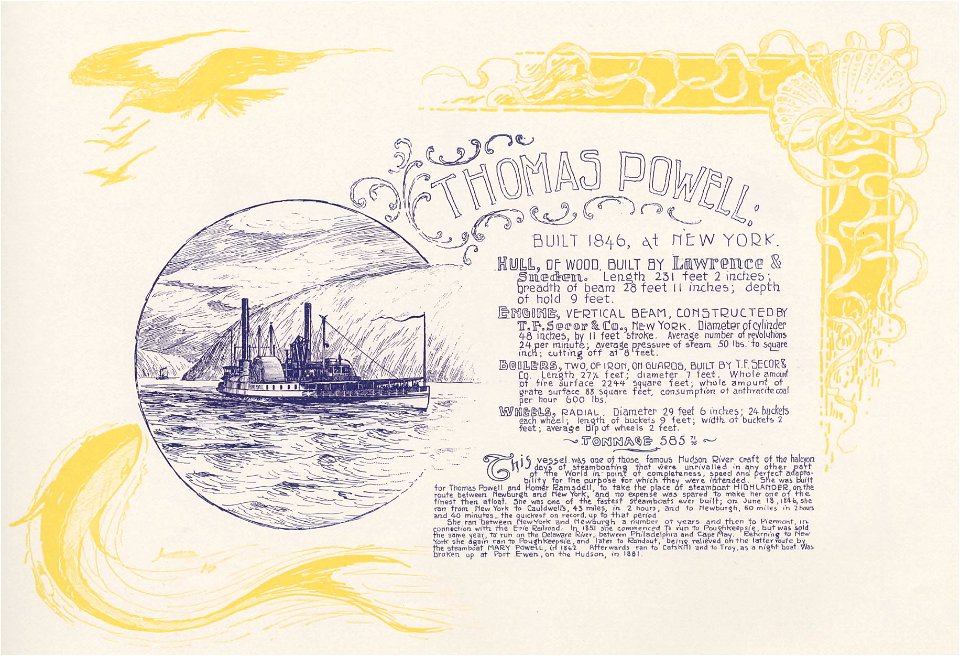 THOMAS POWELL.
BUILT 1846, at NEW YORK.
HULL, OF WOOD, BUILT BY Lawrence &
Sneden. Length 231 feet 2 inches;
breadth of beam 28 feet 11 inches; depth
of hold 9 feet.
ENGINE, VERTICAL BEAM, CONSTRUCTED BY
T.F. Secor & Co., NEW YORK. Diameter of cylinder
48 inches, by 11 feet stroke. Average number of revolutions
24 per minute; average pressure of steam 50 lbs. to square
inch; cutting off at 8 feet.
BOILERS, TWO, OF IRON, ON GUARDS, BUILT BY T.F. SECOR &
Co. Length 27½ feet; diameter 7 feet. Whole amount
of fire surface 2244 square feet; whole amount of
grate surface 88 square feet, consumption of anthracite coal
per hour 600 lbs.
WHEELS, RADIAL. Diameter 29 feet 6 inches; 24 buckets
each wheel; length of buckets 9 feet; width of buckets 2
feet; average dip of wheels 2 feet.
~TONNAGE 585 ~
This vessel was one of those famous Hudson River craft of the halcyon
days of steamboating that were unrivalled in any other part
of the World in point of completeness, speed and perfect adapta-
bility for the purpose for which they were intended. She was built
for Thomas Powell and Homer Ramsdell, to take the place of steamboat HIGHLANDER, on the
route between Newburgh and New York, and no expense was spared to make her one of the
finest then afloat. She was one of the fastest steamboats ever built; on June 13, 1846, she
ran from New York to Cauldwells, 43 miles, in 2 hours, and to Newburgh, 60 miles in 2 hours
and 40 minutes, the quickest on record, up to that period.
She ran between New York and Newburgh a number of years and then to Piermont, in
connection with the Erie Railroad. In 1851 she commenced to run to Poughkeepsie, but was sold
the same year, to run on the Delaware River, between Philadelphia and Cape May. Returning to New
York she again ran to Poughkeepsie, and later to Rondout, being relieved on the latter route by
the steamboat MARY POWELL, in 1862. Afterwards ran to Catskill and to Troy, as a night boat. Was
broken up at Port Ewen, on the Hudson, in 1881.